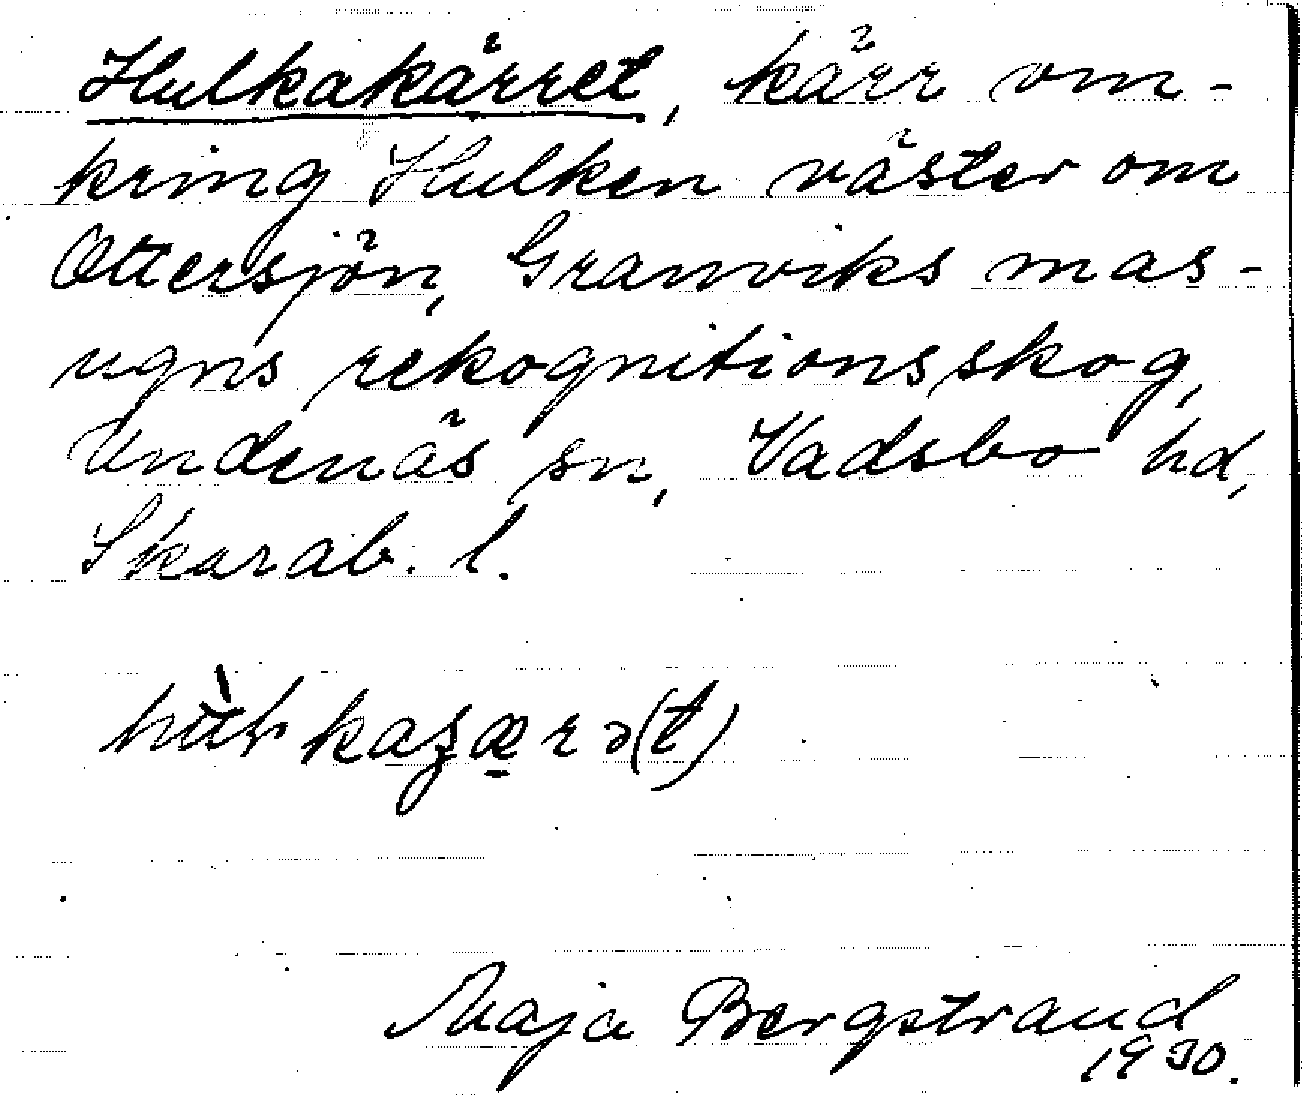 Hulkakärret, kärr om-
kring Hulken väster om
Ottersjön, Granviks mas-
ugns rekognitionsskog,
Undenäs sn, Vadsbo hd,
Skarab. l.
Maja Bergstrand
1930.